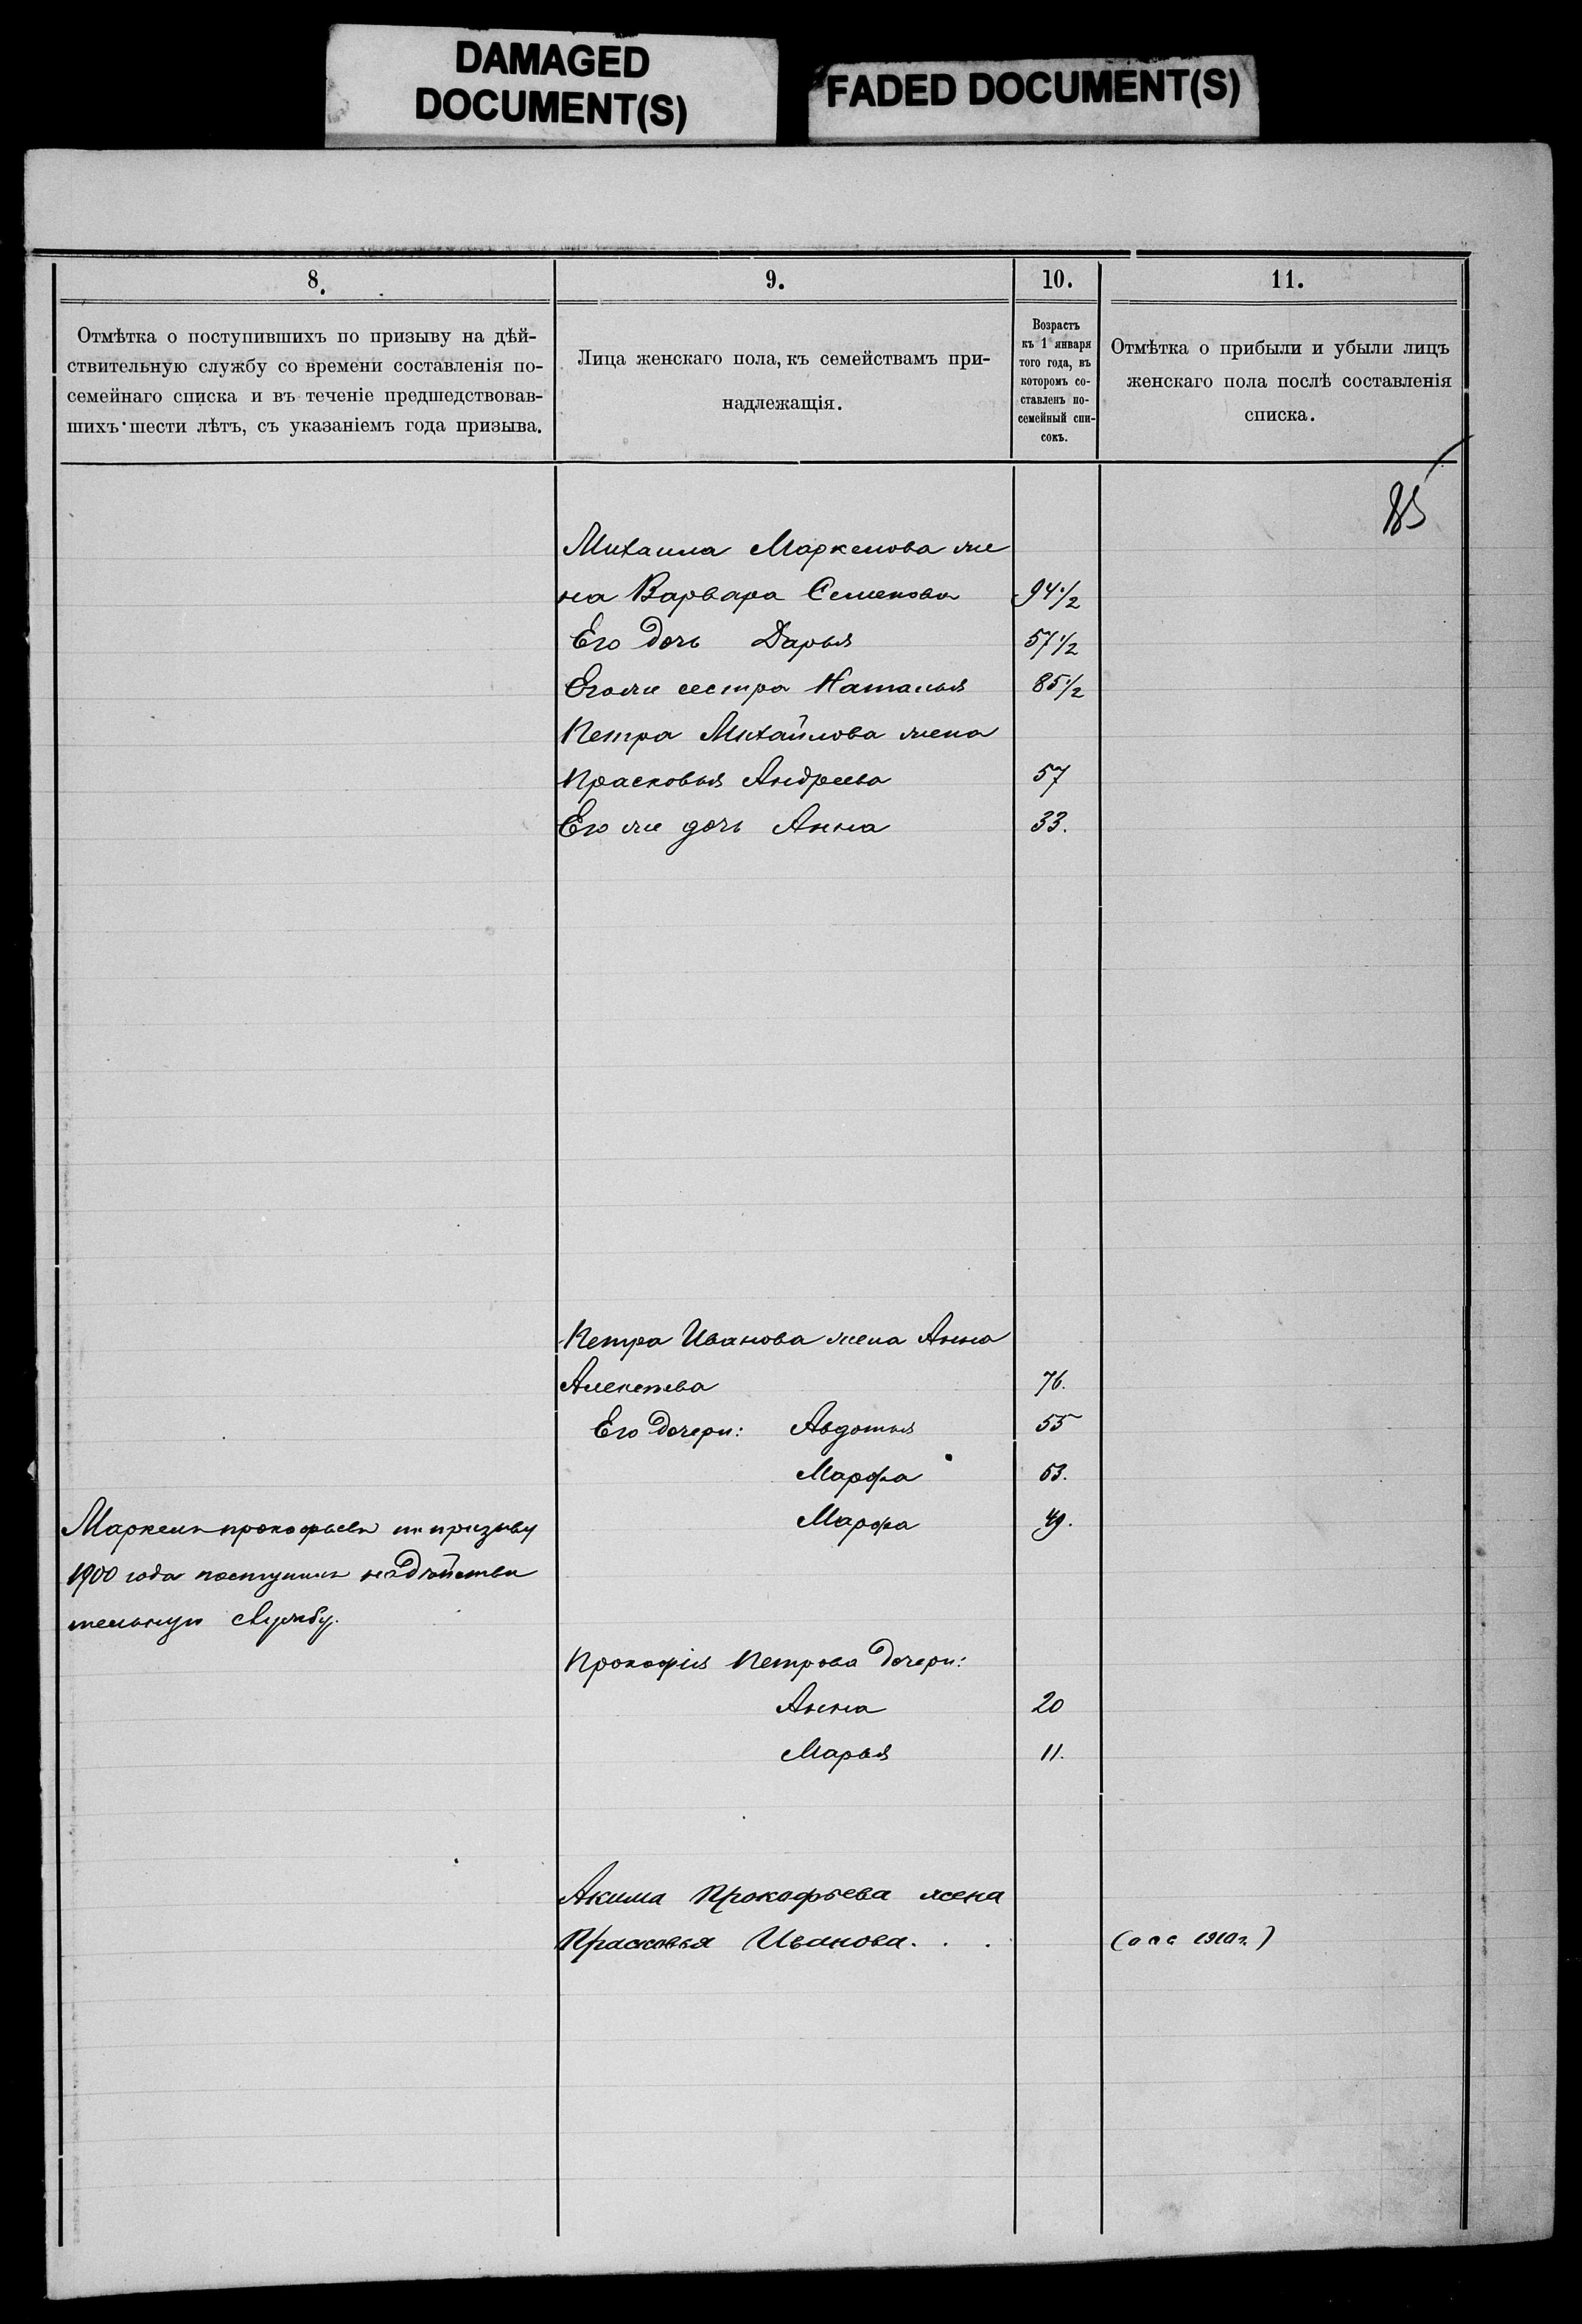 DAMAGED
DOCUMENT(S)
FADED DOCUMENT(S)
8.
9.
10.
11.
Отмѣтка о поступившихъ по призыву на дѣй-
ствительную службу со времени составленія по-
семейнаго списка и въ теченіе предшедствовав-
шихъ шести лѣтъ, съ указаніемъ года призыва.
Лица женскаго пола, къ семействамъ при-
надлежащія.
Возрастъ
къ 1 января
того года, въ
которомъ со-
ставленъ по-
семейный спи-
сокъ.
Отмѣтка о прибыли и убыли лицъ
женскаго пола послѣ составленія
списка.
Михаила Маркелова же
на Варвара Семенова 94 1/2
Его дочь Дарья 57 1/2
Его же сестра Наталья 85 1/2
Петра Михайлова жена
Прасковья Андреева 57
Его же дочь Анна 33.
Петра Иванова жена Анна
Алексѣева 76.
Его дочери: Авдотья 55
Марфа 53.
Марфа 49.
Маркелъ Прокофьевъ по призыву
1900 года поступилъ на дѣйстви
тельную службу.
Прокофія Петрова дочери:
Анна 20
Марья 11.
Акима Прокофьева жена
Прасковья Иванова. . . 1910 г.)